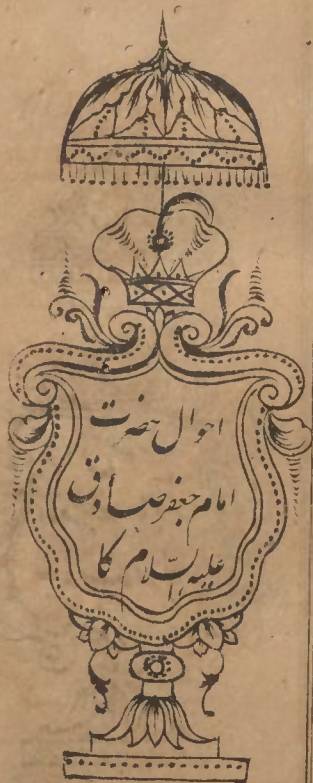 احوال حضرت
امام جعفر صادق
علیہ السّلام کا